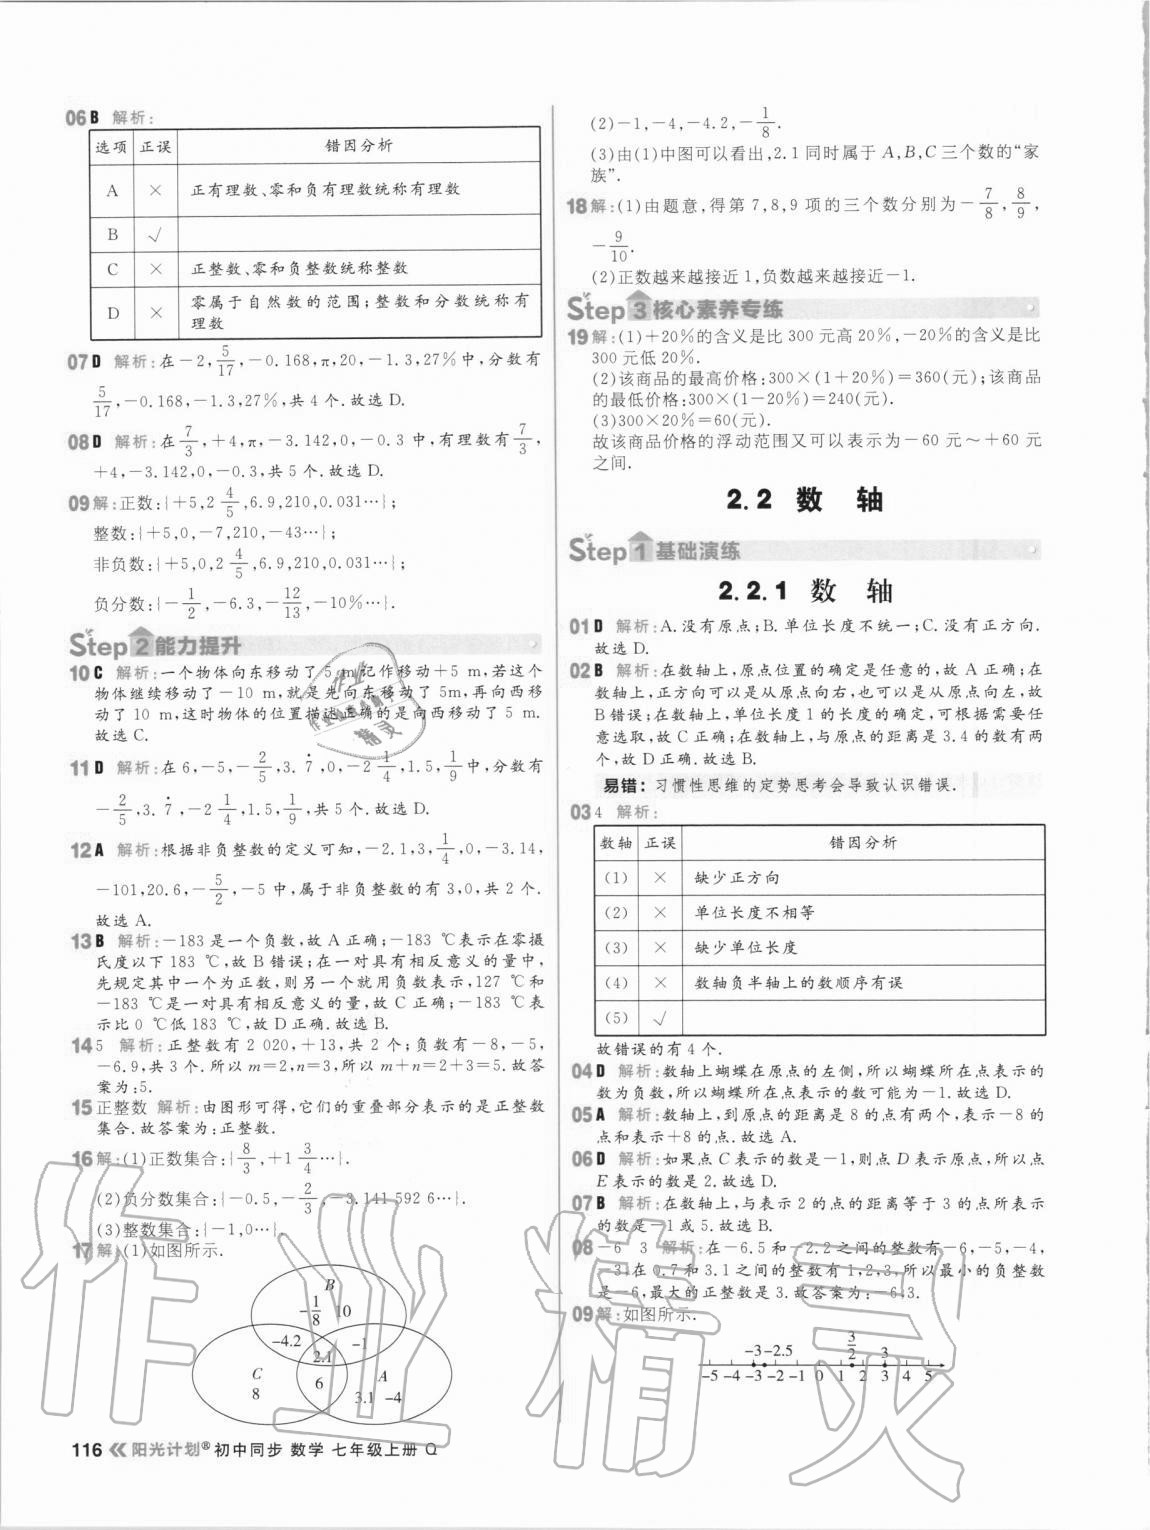 06 B 解析:
选项 正误 错因分析
A × 正有理数、零和负有理数统称有理数
B √
C × 正整数、零和负整数统称整数
D × 零属于自然数的范围;整数和分数统称有
理数
07 D 解析:在-2,5/17,-0.168,π,20,-1.3,27%中,分数有
5/17,-0.168,-1.3,27%,共4个.故选D.
08 D 解析:在7/3,+4,π,-3.142,0,-0.3中,有理数有7/3,
+4,-3.142,0,-0.3,共5个.故选D.
09 解:正数:{+5,2 4/5,6.9,210,0.031…};
整数:{+5,0,-7,210,-43…};
非负数:{+5,0,2 4/5,6.9,210,0.031…};
负分数:{-1/2,-6.3,-12/13,-10%…}.
Step 2 能力提升
10 C 解析:一个物体向东移动了5 m记作移动+5 m,若这个
物体继续移动了-10 m,就是先向东移动了5m,再向西移
动了10 m,这时物体的位置描述正确的是向西移动了5 m.
故选C.
11 D 解析:在6,-5,-2/5,3.7̇,0,-2 1/4,1.5,1/9中,分数有
-2/5,3.7̇,-2 1/4,1.5,1/9,共5个.故选D.
12 A 解析:根据非负整数的定义可知,-2.1,3,1/4,0,-3.14,
-101,20.6,-5/2,-5中,属于非负整数的有3,0,共2个.
故选A.
13 B 解析:-183是一个负数,故A正确;-183 ℃表示在零摄
氏度以下183 ℃,故B错误;在一对具有相反意义的量中,
先规定其中一个为正数,则另一个就用负数表示,127 ℃和
-183 ℃是一对具有相反意义的量,故C正确;-183 ℃表
示比0 ℃低183 ℃,故D正确.故选B.
14 5 解析:正整数有2 020,+13,共2个;负数有-8,-5,
-6.9,共3个.所以m=2,n=3,所以m+n=2+3=5.故答
案为:5.
15 正整数 解析:由图形可得,它们的重叠部分表示的是正整数
集合.故答案为:正整数.
16 解:(1)正数集合:{8/3,+1 3/4…}.
(2)负分数集合:{-0.5,-2/3,-3.141 592 6…}.
(3)整数集合:{-1,0…}.
17 解:(1)如图所示.
B
-1/8 10
-4.2 -1
2.1
C A
6
8 3.1 -4
116 阳光计划® 初中同步 数学 七年级上册 Q
(2)-1,-4,-4.2,-1/8.
(3)由(1)中图可以看出,2.1同时属于A,B,C三个数的“家
族”.
18 解:(1)由题意,得第7,8,9项的三个数分别为-7/8,8/9,
-9/10.
(2)正数越来越接近1,负数越来越接近-1.
Step 3 核心素养专练
19 解:(1)+20%的含义是比300元高20%,-20%的含义是比
300元低20%.
(2)该商品的最高价格:300×(1+20%)=360(元);该商品
的最低价格:300×(1-20%)=240(元).
(3)300×20%=60(元).
故该商品价格的浮动范围又可以表示为-60元~+60元
之间.
2.2 数 轴
Step 1 基础演练
2.2.1 数 轴
01 D 解析:A.没有原点;B.单位长度不统一;C.没有正方向.
故选D.
02 B 解析:在数轴上,原点位置的确定是任意的,故A正确;在
数轴上,正方向可以是从原点向右,也可以是从原点向左,故
B错误;在数轴上,单位长度1的长度的确定,可根据需要任
意选取,故C正确;在数轴上,与原点的距离是3.4的数有两
个,故D正确.故选B.
易错:习惯性思维的定势思考会导致认识错误.
03 4 解析:
数轴 正误 错因分析
(1) × 缺少正方向
(2) × 单位长度不相等
(3) × 缺少单位长度
(4) × 数轴负半轴上的数顺序有误
(5) √
故错误的有4个.
04 D 解析:数轴上蝴蝶在原点的左侧,所以蝴蝶所在点表示的
数为负数,所以蝴蝶所在点表示的数可能为-1.故选D.
05 A 解析:数轴上,到原点的距离是8的点有两个,表示-8的
点和表示+8的点.故选A.
06 D 解析:如果点C表示的数是-1,则点D表示原点,所以点
E表示的数是2.故选D.
07 B 解析:在数轴上,与表示2的点的距离等于3的点所表示
的数是-1或5.故选B.
08 -6 3 解析:在-6.5和-2.2之间的整数有-6,-5,-4,
-3;在0.7和3.1之间的整数有1,2,3,所以最小的负整数
是-6,最大的正整数是3.故答案为:-6;3.
09 解:如图所示.
-3 -2.5 3/2 3
-5 -4 -3 -2 -1 0 1 2 3 4 5
作业精灵